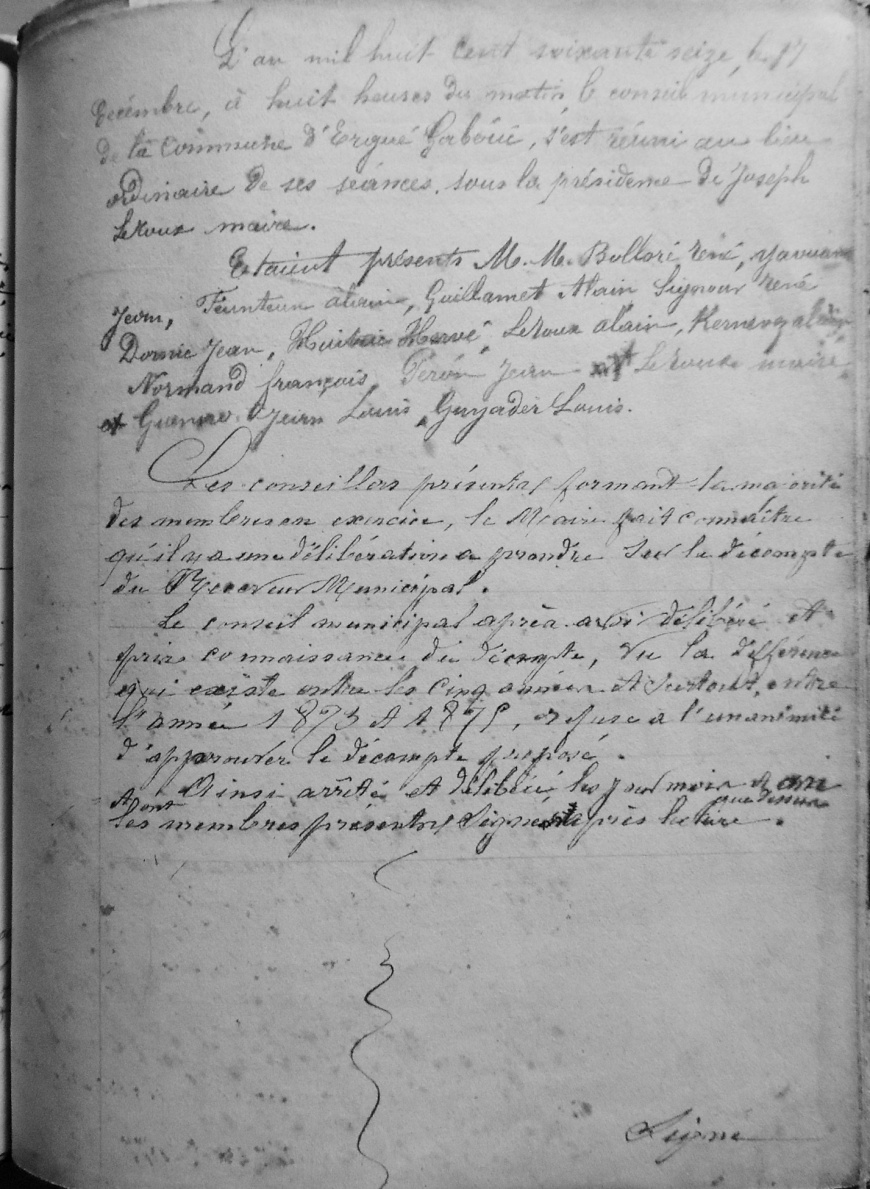 L'an mil huit cent soixante seize, le 17
Décembre, à huit heures du matin, le conseil municipal
de la Commune d'Ergué Gabéric, s'est réuni au lieu
ordinaire de ses séances, sous la présidence de Joseph
LeRoux maire.
Etaient présents M. M. Bolloré René,
Jean, Feunteun alain, Guillamet Alain Signour René
Jean, Huitric Hervé, LeRoux alain,
Normand françois, Jean et Le Roux maire
et Jean Louis, Guyader Louis.
Les conseillers présents formant la majorité
des membres en exercice, le Maire fait connaître
qu'il y a une délibération a prendre sur le décompte
du Receveur Municipal.
Le conseil municipal après avoir délibéré et
pris connaissance du décompte, vu la différence
qui existe entre les cinq années et surtout, entre
l'année 1873 et 1875, refuse a l'unanimité
d'approuver le décompte proposé.
Ainsi arrêté et délibéré les jour mois et an
que dessus
et ont
les membres présents signé après lecture.
Signé